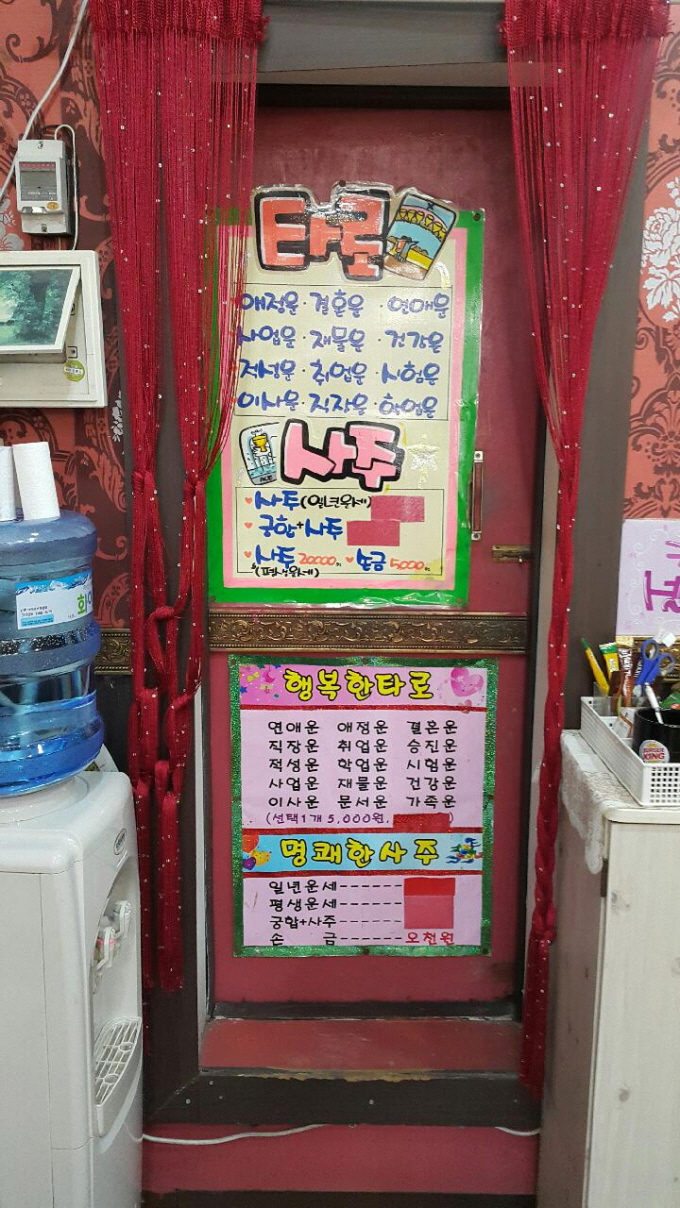 타로
애정운·결혼운·연애운
사업운·재물운·건강운
적성운·취업운·시험운
이사운·직장운·학업운
사주
♥사주(일년운세)
♥궁합+사주
♥사주 20000원 ♥손금 5000원
(평생운세)
행복한타로
연애운 애정운 결혼운
직장운 취업운 승진운
적성운 학업운 시험운
사업운 재물운 건강운
이사운 문서운 가족운
(선택1개 5,000원,
명쾌한사주
일년운세------
평생운세------
궁합+사주-----
손 금------오천원
BURGER
KING